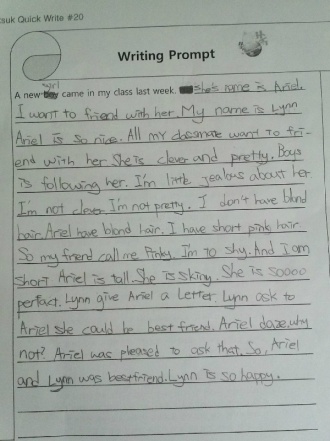 tsuk Quick Write #20
Writing Prompt
girl
A new boy came in my class last week. She's name is Ariel.
I want to friend with her. My name is Lynn
Ariel is so nice. All my classmate want to fri-
end with her. She is clever and pretty. Boys
is following her. I'm little jealous about her
I'm not clever I'm not pretty. I don't have blond
hair. Ariel have blond hair. I have short pink hair
So my friend call me Pinky. I'm to shy. And I am
short Ariel is tall. She is sking. She is soooo
perfact. Lynn give Ariel a Letter. Lynn ask to
Ariel she could be best friend. Ariel daze, why
not? Ariel was pleased to ask that. So, Ariel
and Lynn was bestfriend. Lynn is so happy.